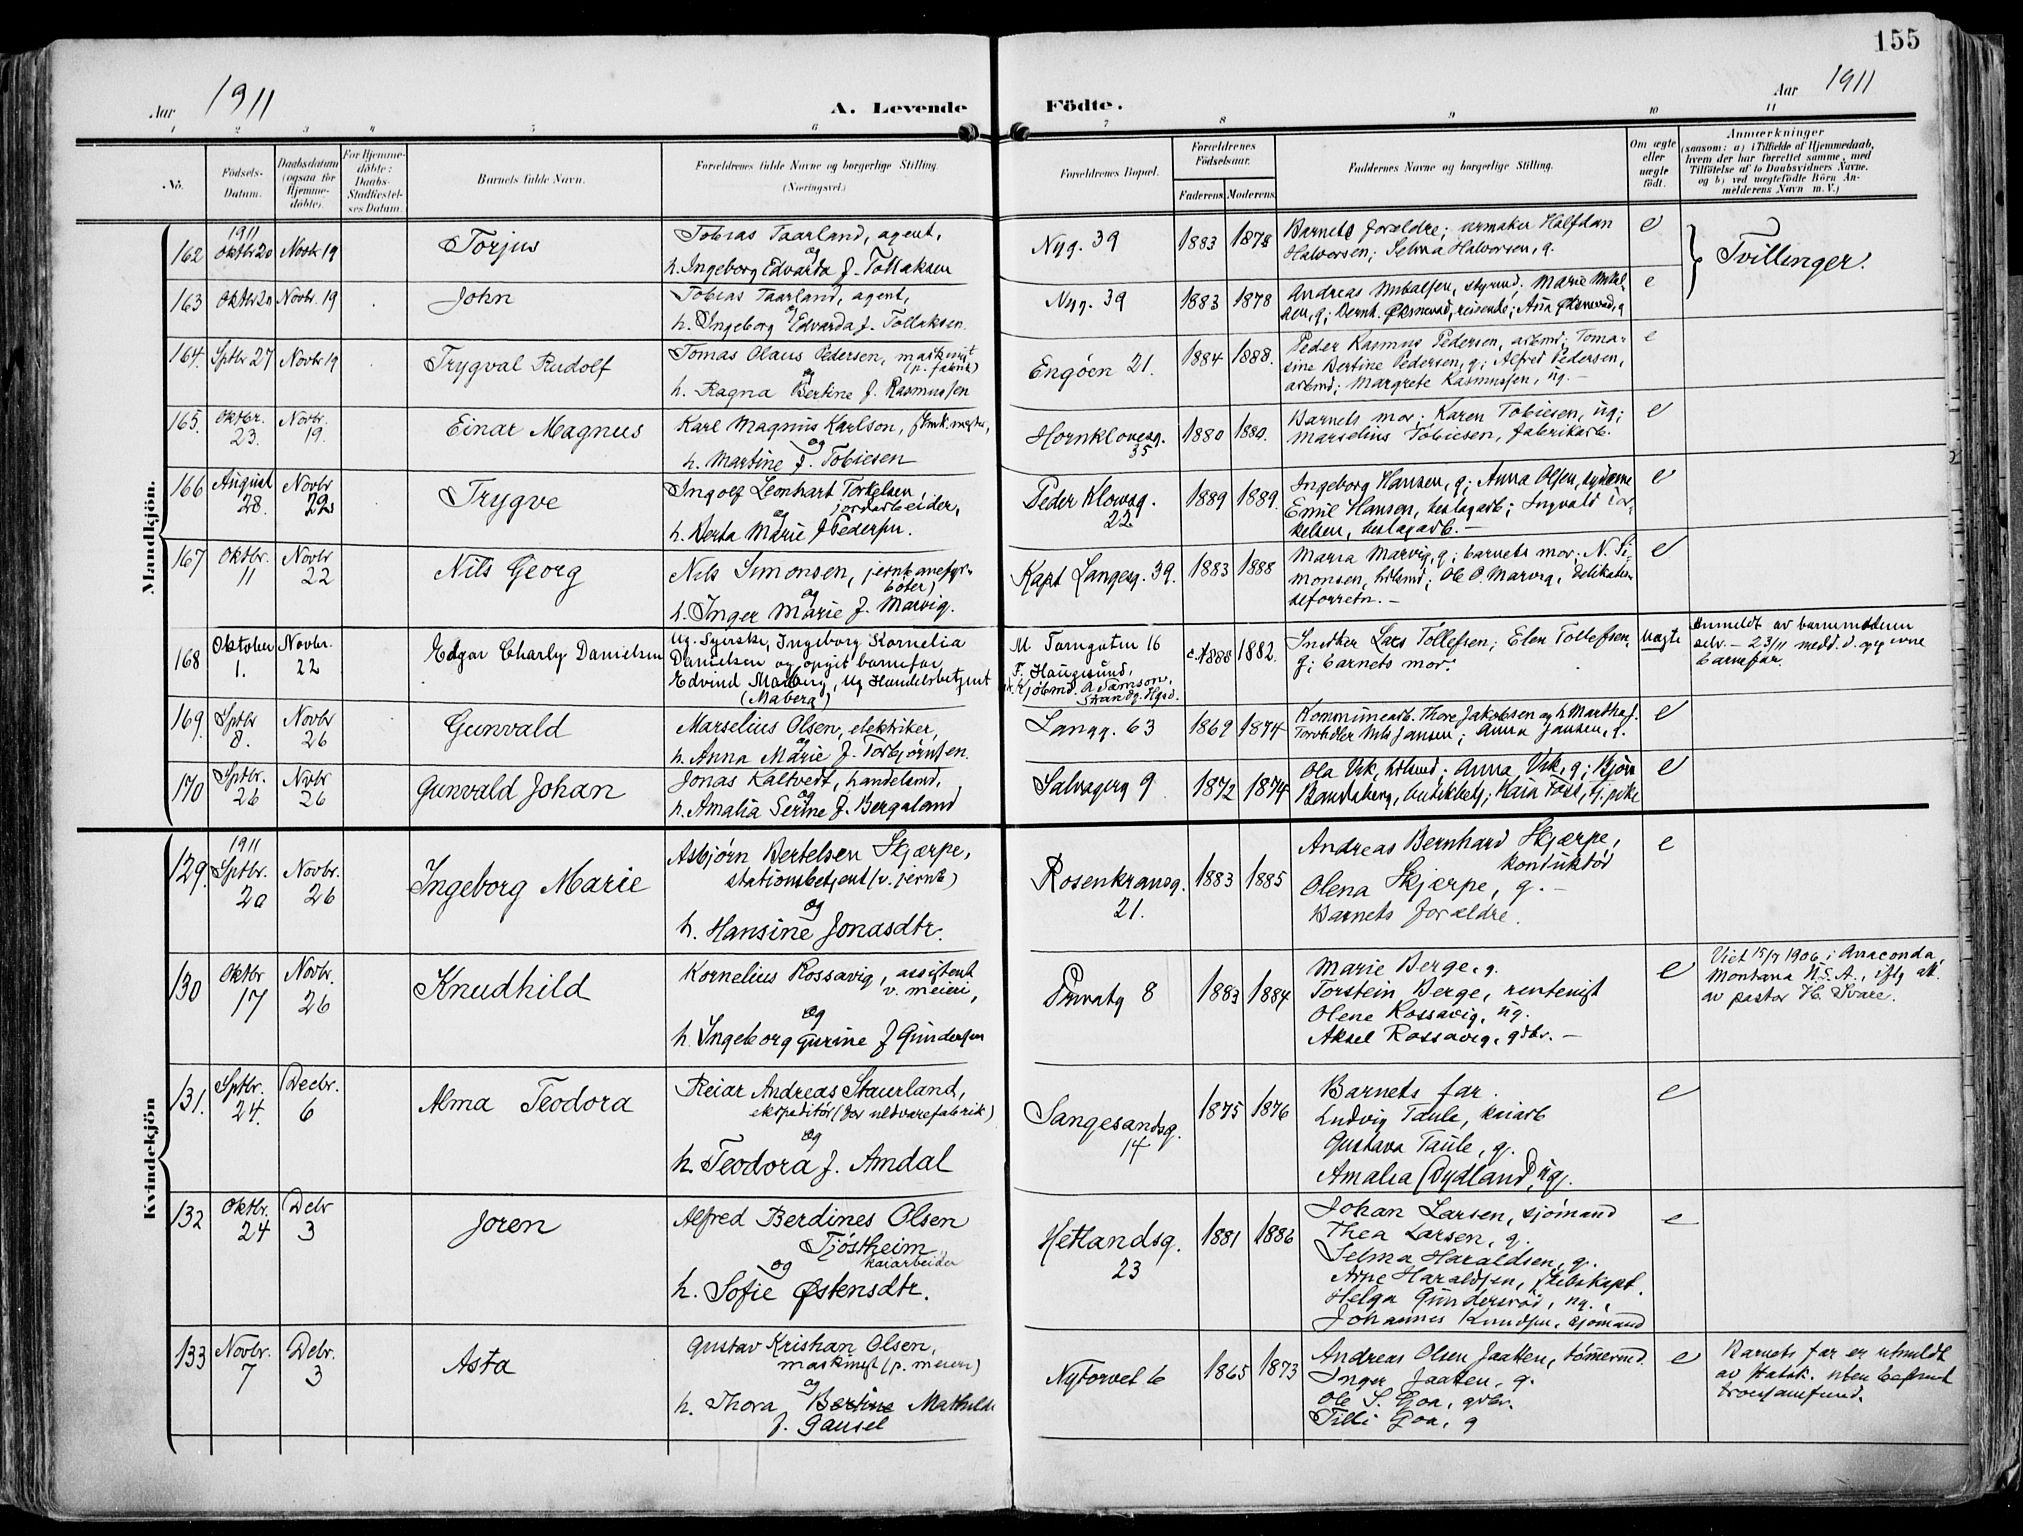 155
Aar 1911
A. Levende Födte.
Aar 1911
1 2 3 4 5 6 7 8 9 10 11
No.
Födsels-
Datum.
Daabsdatum
(ogsaa for
Hjemme-
döbte).
For Hjemme-
döbte:
Daabs-
Stadfæstel-
ses Datum.
Barnets fulde Navn.
Forældrenes fulde Navne og borgerlige Stilling
(Næringsvei.)
Forældrenes Bopæl.
Forældrenes
Födselsaar.
Faderens. Moderens.
Faddernes Navne og borgerlige Stilling.
Om ægte
eller
uægte
födt.
Anmærkninger
(saasom: a) i Tilfælde af Hjemmedaab,
hvem der har forrettet samme, med
Tilföielse af to Daabsvidners Navne.
og b) ved uægtefödte Börn An-
melderens Navn m. V.)
Mandkjön.
162
1911
Oktbr 20
Novbr 19
Torjus
Tobias Taarland, agent,
og
h. Ingeborg Edvarda f. Tollaksen
Nyg. 39
1883
1878
Barnets forældre; urmaker Halfdan
Halvorsen; Selma Halvorsen, g.
e
Tvillinger.
163
Oktbr 20
Novbr. 19
John
Tobias Taarland, agent,
og
h. Ingeborg Edvarda f. Tollaksen.
Nyg. 39
1883
1878
Andreas Mikalsen, styrmd; Marie Mikal-
sen, g; Bernh. Øksnevad, reisende; Ana Øksnevad, g
e
164.
Sptbr 27
Novbr 19
Trygval Rudolf
Tomas Olaus Pedersen, maskinist
(p. fabrik)
og
h. Ragna Bertine f. Rasmussen
Engøen 21.
1884
1888.
Peder Rasmus Pedersen, arbmd; Toma-
sine Bertine Pedersen, g; Alfred Pedersen,
arbmd; Margrete Rasmussen, ug. –
e
165.
Oktbr.
23.
Novbr.
19.
Einar Magnus
Karl Magnus Karlson,
og
h. Martine f. Tobiesen
Hornklovesg.
35
1880
1880.
Barnets mor; Karen Tobiesen, ug;
Marselius Tobiesen, fabrikarb.
e
166
August
28.
Novbr
22
Trygve
Ingolf Leonhart Torkelsen,
jordarbeider,
og
h. Berta Marie f Pedersen.
Peder Klowsg.
22
1889
1889.
Ingeborg Hansen, g; Anna Olsen, syerske
Emil Hansen, beslagarb; Ingvald Tor-
kelsen, beslagarb. –
e
167
Oktbr.
11
Novbr
22
Nils Georg
Nils Simonsen, jernbanefyr-
bøter)
og
h. Inger Marie f. Marvig.
Kapt Langesg. 39.
1883
1888
Maria Marvig, g; barnets mor. N. Si-
monsen, hdlsmd; Ole O. Marvig, delikates-
seforretn. –
e
168
Oktober
1.
Novbr.
22
Edgar Charly Danielsen
Ug. Syerske, Ingeborg Kornelia
Danielsen og opgit barnefar,
Edvind Maaberg, ug Handelsbetjent
(Maberg)
M. Tarngaten 16
F. Haugesund,
Kjøbmd. A Samson,
Strandg. Hgsd.
c. 1888
1882.
Snedker Lars Tollefsen; Elen Tollefsen,
g; barnets mor.
Uægte
Anmeldt av barnemoderen
selv. – 23/11 medd. d. opgivne
barnefar.
169.
Sptbr
8.
Novbr
26
Gunvald
Marselius Olsen, elektriker,
og
h. Anna Marie f. Torbjørnsen.
Langg. 63
1869
1874
Kommunearb. Thore Jakobsen og h. Martha f.
Torvhdler Nils Jansen; Anna Jansen, g.
e
170
Sptbr.
26
Novbr
26
Gunvald Johan
Jonas Kaltvedt, handelsmd,
og
h. Amalia Serine f. Bergaland
Salvagerg 9.
1872
1874
Ola Vik, hdlsmd; Anna Vik, g; Bjørn
e
Kvindekjön
129.
1911
Sptbr.
20
Novbr.
26
Ingeborg Marie
Asbjørn Bertelsen Skjærpe,
stationsbetjent (v. jernb)
og
h. Hansine Jonasdtr.
Rosenkransg.
21.
1883
1885
Andreas Bernhard Skjærpe,
konduktør
Olena Skjærpe, g. –
Barnets forældre.
e
130
Oktbr
17
Novbr.
26
Knudhild
Kornelius Rossavig, assistent
v. meieri,
og
h. Ingeborg Gurine f Gundersen
Privatg 8
1883
1884
Marie Berge, g.
Torstein Berge, rentenist
Olene Rossavig, ug.
Aksel Rossavig, gdbr. –
e
Viet 15/7 1906 i Anaconda,
Montana U.S.A., iflg at.
av pastor H. Svare.
131.
Sptbr.
24.
Decbr.
6
Alma Teodora
Reiar Andreas Staurland,
ekspeditør (for uldvarefabrik)
og
h. Teodora f. Amdal
Sangesandsg.
14
1875
1876
Barnets far.
Ludvig Taule, kaiarb
Gustava Taule, g.
Amalia Dydland, ug.
e
132
Oktbr.
24
Debr
3
Joren
Alfred Berdines Olsen
Tjøstheim
kaiarbeider
og
h. Sofie Østensdtr.
Hetlandsg.
23
1881
1886
Johan Larsen, sjømand
Thea Larsen, g.
Selma Haraldsen, g.
Arne Haraldsen, skibskapt.
Helga Gundersrød, ug.,
Johannes Knudsen, sjømand
e
133
Novbr.
7
Debr.
3
Asta
Gustav Kristian Olsen,
maskinist (p. meieri)
og
h. Thora Bertine Mathilde
f. Gausel
Nytorvet 6
1865
1873
Andreas Olsen Jaatten, tømermd.
Inger Jaatten, g.
Ole S. Goa, gdbr.
Tilli Goa, g
e
Barnets far er utmeldt
av statsk. uten bestemt
trossamfund.